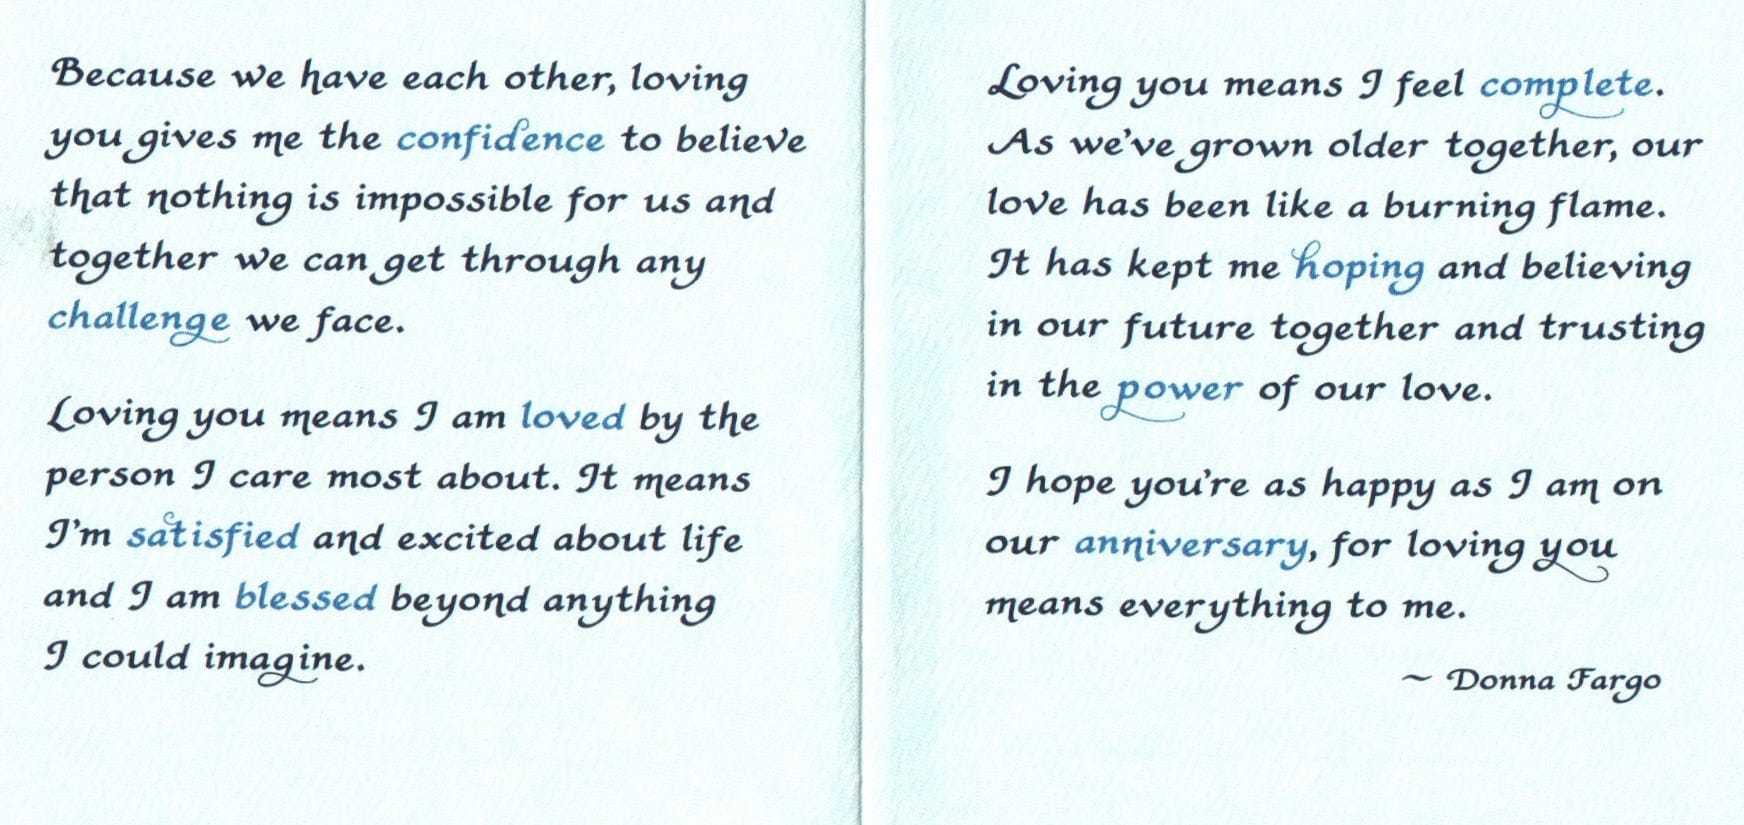 Because we have each other, loving
you gives me the confidence to believe
that nothing is impossible for us and
together we can get through any
challenge we face.
Loving you means I am loved by the
person I care most about. It means
I'm satisfied and excited about life
and I am blessed beyond anything
I could imagine.
Loving you means I feel complete.
As we've grown older together, our
love has been like a burning flame.
It has kept me hoping and believing
in our future together and trusting
in the power of our love.
I hope you're as happy as I am on
our anniversary, for loving you
means everything to me.
~ Donna Fargo